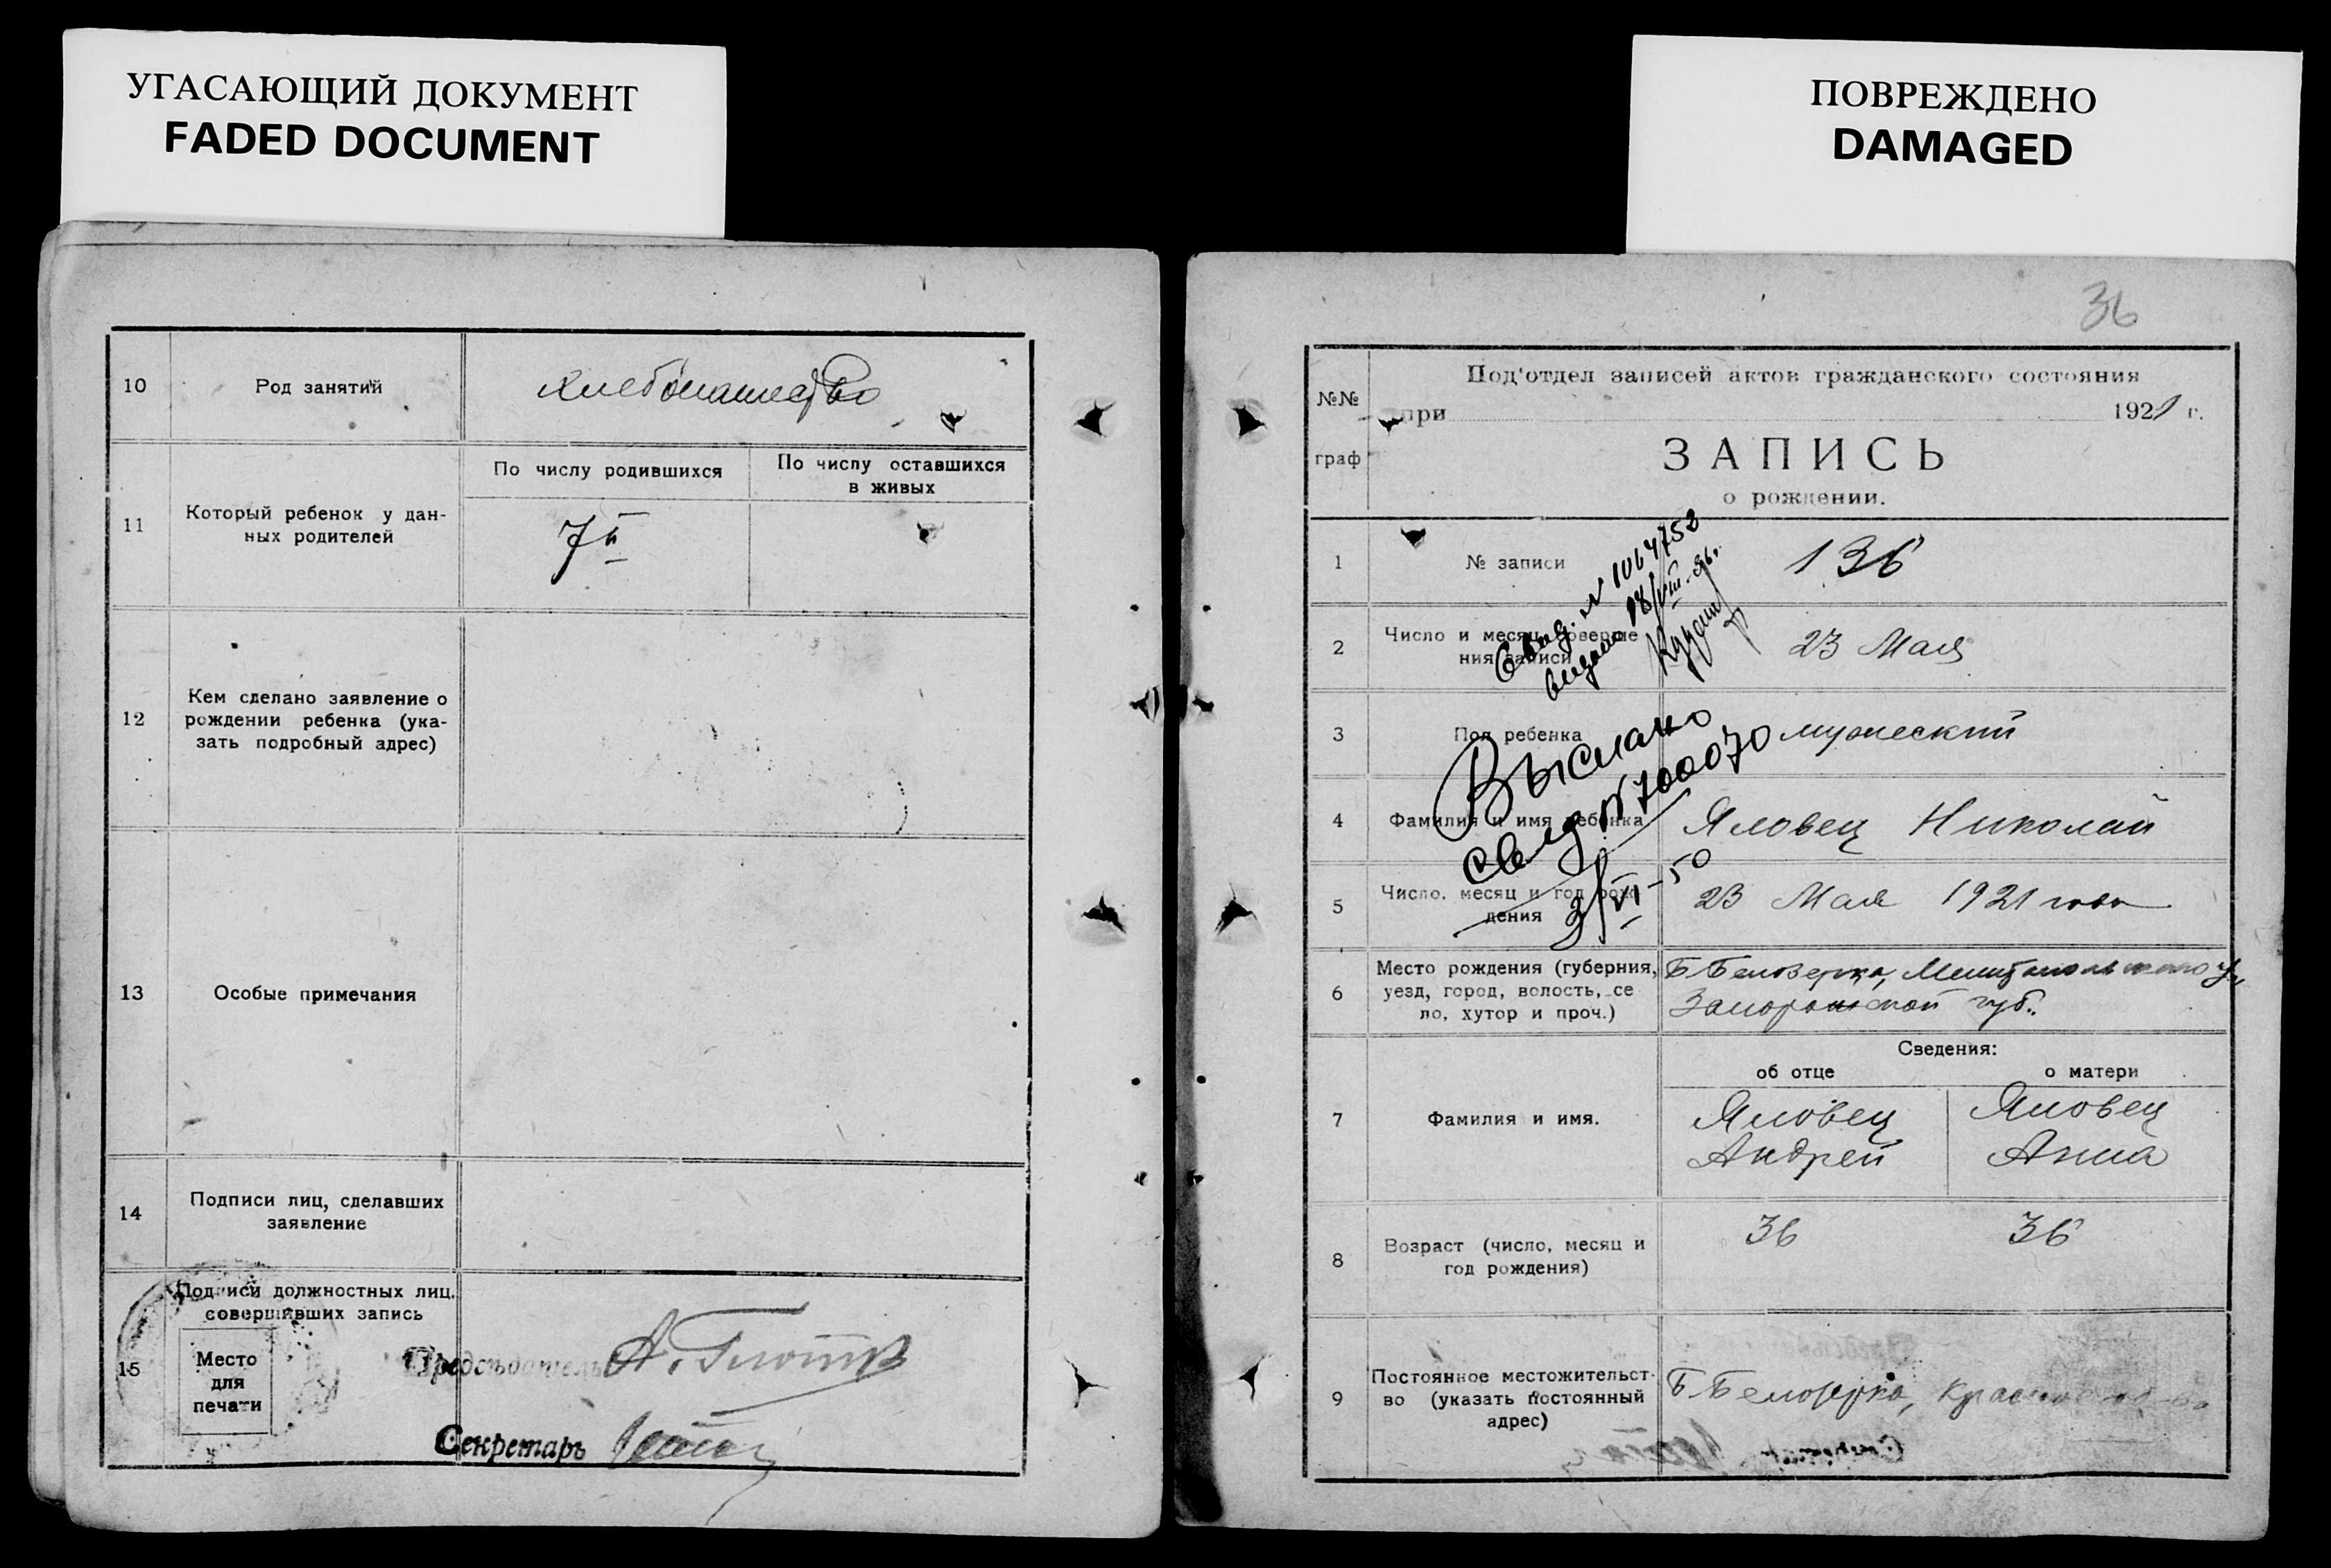 УГАСАЮЩИЙ ДОКУМЕНТ
FADED DOCUMENT
10
Род занятий
хлебопашество
11
Который ребенок у дан-
ных родителей
По числу родившихся
По числу оставшихся
в живых
7й
12
Кем сделано заявление о
рождении ребенка (ука-
зать подробный адрес)
13
Особые примечания
14
Подписи лиц, сделавших
заявление
15
Подписи должностных лиц,
совершивших запись
Место
для
печати
Председатель
Секретарь
ПОВРЕЖДЕНО
DAMAGED
36
№№
граф
Под'отдел записей актов гражданского состояния
при 1921 г.
ЗАПИСЬ
о рождении.
1
№ записи
136
2
Число и месяц соверше
ния записи
23 Мая
3
Пол ребенка
мужеский
4
Фамилия и имя ребенка
Яловец Николай
5
Число, месяц и год рож
дения
23 Мая 1921 года
6
Место рождения (губерния,
уезд, город, волость, се
ло, хутор и проч.)
Б Белозерка, Мелитопольского у.,
Запорожской губ.
Сведения:
об отце
о матери
7
Фамилия и имя.
Яловец
Андрей
Яловец
Анна
8
Возраст (число, месяц и
год рождения)
36
36
9
Постоянное местожительст-
во (указать постоянный
адрес)
Б Белозерка,
Свид. № 1064752
выдано 18/VIII-
Выслано
свид № 700070
3/VI-50